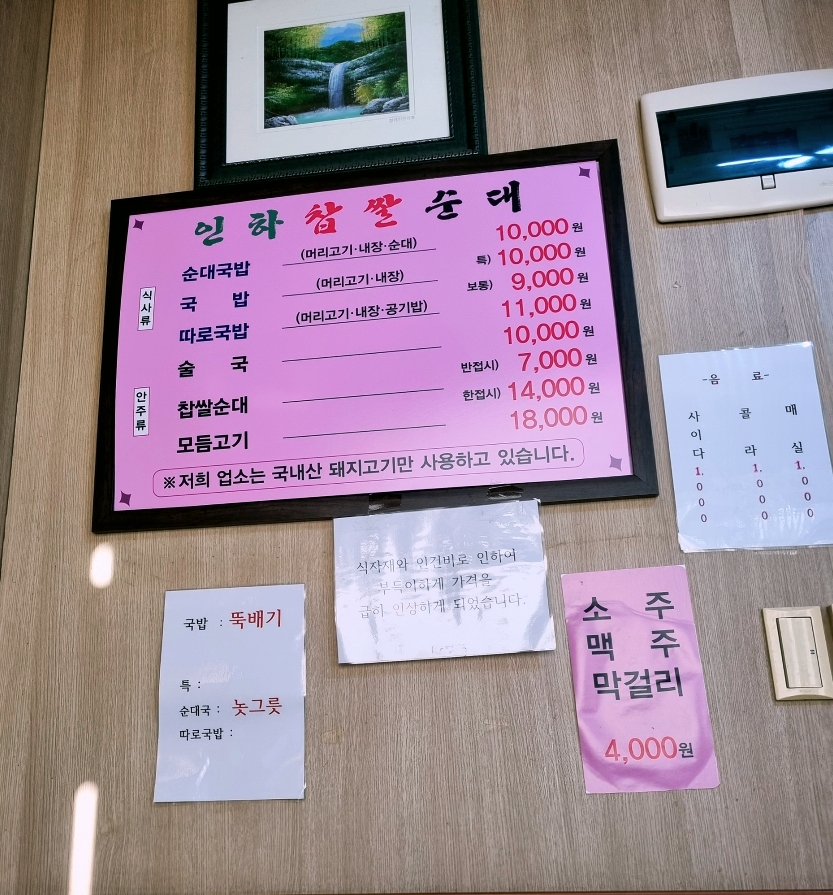 인하찹쌀순대
식사류
순대국밥 (머리고기·내장·순대) 10,000원
국 밥 (머리고기·내장) 특) 10,000원
보통) 9,000원
따로국밥 (머리고기·내장·공기밥) 11,000원
술 국 10,000원
안주류
찹쌀순대 반접시) 7,000원
한접시) 14,000원
모듬고기 18,000원
※저희 업소는 국내산 돼지고기만 사용하고 있습니다.
-음 료-
사이다 1.000
콜라 1.000
매실 1.000
식자재와 인건비로 인하여
부득이하게 가격을
급히 인상하게 되었습니다.
국밥 : 뚝배기
특 :
순대국 : 놋그릇
따로국밥 :
소 주
맥 주
막걸리
4,000원